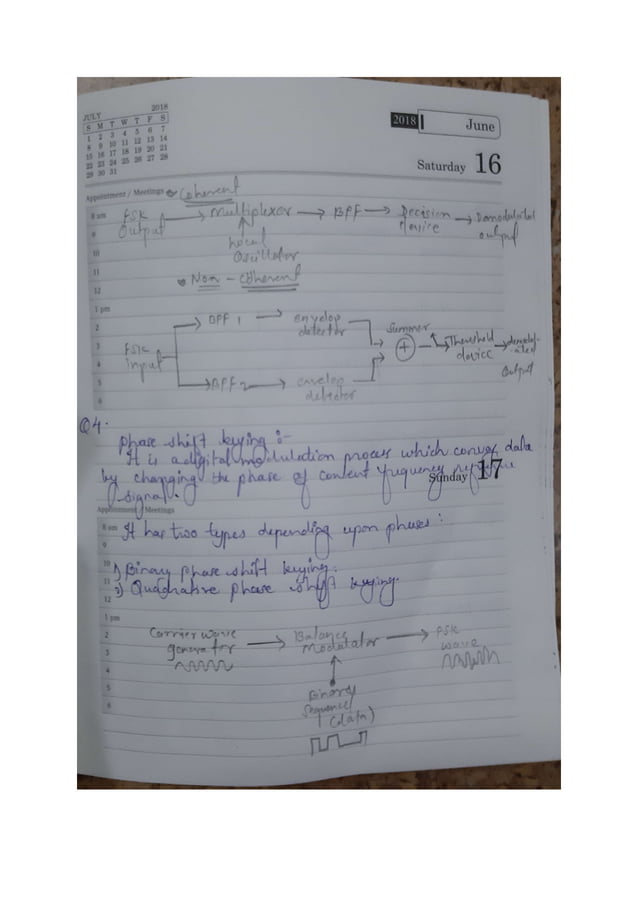 JULY 2018
S M T W T F S
1 2 3 4 5 6 7
8 9 10 11 12 13 14
15 16 17 18 19 20 21
22 23 24 25 26 27 28
29 30 31
2018 June
Saturday 16
Appointment / Meetings
Coherent
8 am
FSK Output → Multiplexer → BPF → Decision device → Demodulated output
9
Local
10
Oscillator
11
Non - Coherent
12
1 pm
BPF 1 → envelop detector
2
Summer
3
FSK input
+ → Threshold device →
4
Output
5
BPF 2 → envelop detector
6
Q4.
phase shift keying :-
It is a digital modulation process which data
by changing the phase of content frequency
signal.
Sunday 17
Appointment / Meetings
8 am It has two types depending upon phases :
9
10 1) Binary phase shift keying.
11 2) phase shift keying.
12
1 pm
2 Carrier wave generator → Balance Modulator → PSK wave
3
4
5
Binary
6
Sequence
(data)